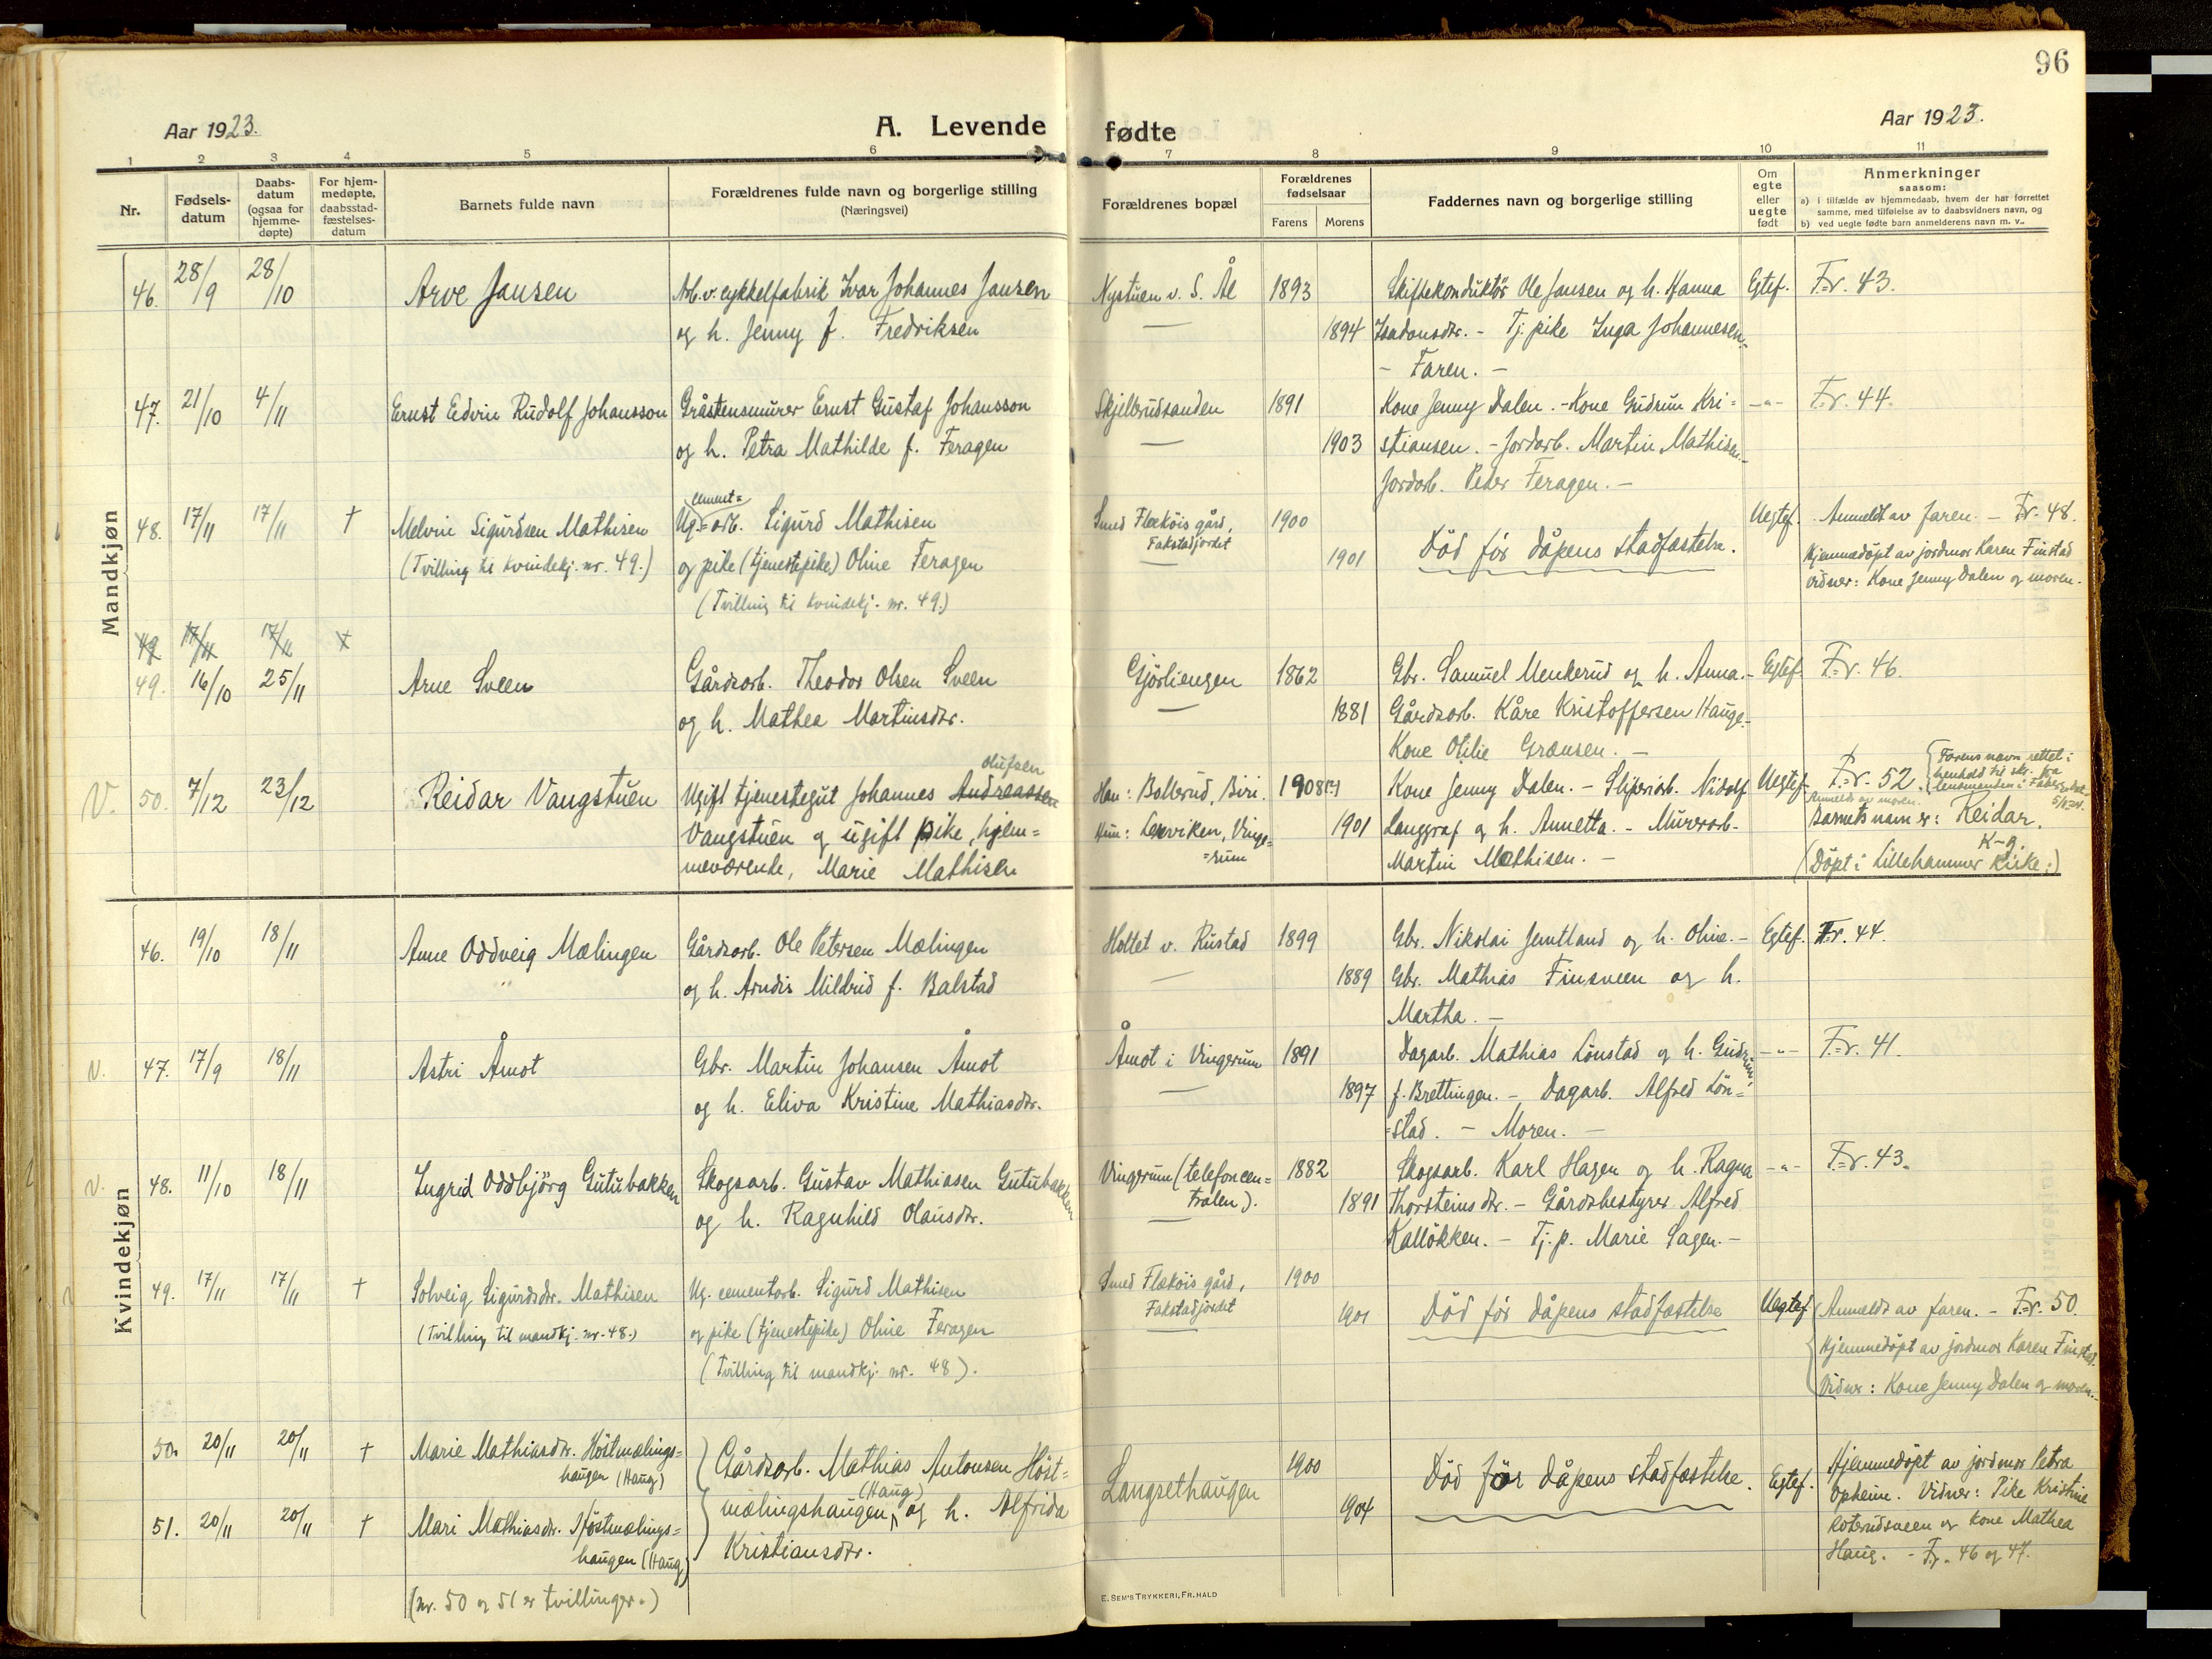 96
Aar 1923.
A. Levende fødte
Aar 1923.
1 2 3 4 5 6 7 8 9 10 11
Nr.
Fødsels-
datum
Daabs-
datum
(ogsaa for
hjemme-
døpte)
For hjem-
medøpte,
daabsstad-
fæstelses-
datum
Barnets fulde navn
Forældrenes fulde navn og borgerlige stilling
(Næringsvei)
Forældrenes bopæl
Forældrenes
fødselsaar
Farens Morens
Faddernes navn og borgerlige stilling
Om
egte
eller
uegte
født
Anmerkninger
saasom:
a) i tilfælde av hjemmedaab, hvem der har forrettet
samme, med tilføielse av to daabsvidners navn, og
b) ved uegte fødte barn anmelderens navn m. v..
Mandkjøn
46. 28/9 28/10 Arve Jansen Arb. v. cykkelfabrik Ivar Johannes Jansen Nystuen v. S. Ål 1893 Skiftekonduktör Ole Jansen og h. Hanna Egtef. F=r. 43.
og h. Jenny f. Fredriksen — 1894 - Tj. pike Inga Johannesen.-
- Faren. -
47. 21/10 4/11 Ernst Edvin Rudolf Johansson Gråstensmurer Ernst Gustaf Johansson Skjelbrudsanden 1891 Kone Jenny Dalen. - Kone Gudrun Kri= -"- F=r. 44.
og h. Petra Mathilde f. Feragen — 1903 stiansen. - Jordarb. Martin Mathisen.-
Jordarb. Peder Feragen. -
48. 17/11 17/11 † Melvin Sigurdsen Mathisen Ug. cement=arb. Sigurd Mathisen Smed Flækøis gård, 1900 Uegtef. Anmeldt av faren. - F=r. 48.
(Tvilling til kvindekj. nr. 49.) og pike (tjenestepike) Oline Feragen Fakstadjordet 1901 Död för dåpens stadfæstelse. Hjemmedöpt av jordmor Karen Finstad
(Tvilling til kvindekj. nr. 49.) Vidner: Kone Jenny Dalen og moren.
49 17/11 17/11 †
49. 16/10 25/11 Arne Sveen Gårdsarb. Theodor Olsen Sveen Gjörliengen 1862 Gbr. Samuel Menkerud og h. Anna.- Egtef. F=r. 46.
og h. Mathea Martinsdtr. — 1881 Gårdsarb. Kåre Kristoffersen Hauge.-
Kone Otilie Grænsen. -
V. 50. 7/12 23/12 Reidar Vangstuen Ugift tjenestegut Johannes Andreassen Olufsen Han: Bollerud, Biri. 1908(?) Kone Jenny Dalen. - Sliperiarb. Nidolf Uegtef. F=r. 52. {Farens navn rettet i
henhold til skr. fra
lensmanden i
Anmeldt av moren.
Vangstuen og ugift pike, hjem= Hun: Lerviken, Vinge= 1901 Langgraf og h. Annetta. - Murerarb. Barnets navn er: Reidar.
meværende, Marie Mathisen =rum Martin Mathisen. - K-g.
(Döpt i Lillehammer kirke.)
Kvindekjøn
46. 19/10 18/11 Anne Oddveig Mælingen Gårdsarb. Ole Petersen Mælingen Holtet v. Rustad 1899 Gbr. Nikolai Jemtland og h. Oline. - Egtef. F=r. 44.
og h. Arndis Mildrid f. Balstad — 1889 Gbr. Mathias Finsveen og h.
Martha. -
V. 47. 17/9 18/11 Astri Åmot Gbr. Martin Johansen Åmot Åmot i Vingrum 1891 Dagarb. Mathias Lönstad og h. Gudrun, -"- F=r. 41.
og h. Eliva Kristine Mathiasdtr. — 1897 f. Brettingen. - Dagarb. Alfred Lön=
=stad. - Moren. -
V. 48. 11/10 18/11 Ingrid Oddbjörg Gutubakken Skogsarb. Gustav Mathiasen Gutubakken Vingrum (telefoncen= 1882 Skogsarb. Karl Hagen og h. Ragna -"- F=r. 43.
og h. Ragnhild Olausdtr. tralen). 1891 Thorsteinsdtr. - Gårdsbestyrer Alfred
Kallökken. - Tj. p. Marie Sagen. -
49. 17/11 17/11 † Solveig Sigurdsdtr. Mathisen Ug. cementarb. Sigurd Mathisen Smed Flækøis gård, 1900
(Tvilling til mandkj. nr. 48.) og pike (tjenestepike) Oline Feragen Fakstadjordet 1901 Död för dåpens stadfæstelse Uegtef. Anmeldt av faren. - F=r. 50.
(Tvilling til mandkj. nr. 48). Hjemmedöpt av jordmor Karen Finstad.
Vidner: Kone Jenny Dalen og moren.
50. 20/11 20/11 † Marie Mathiasdtr. Höstmælings= Gårdsarb. Mathias Antonsen Höst= Langsethaugen 1900 Död för dåpens stadfæstelse. Egtef. Hjemmedöpt av jordmor Petra
haugen (Haug) mælingshaugen (Haug) og h. Alfrida 1904 Opheim. Vidner: Pike Kristine
51. 20/11 20/11 † Mari Mathiasdtr. Höstmælings= Kristiansdtr. Roterudsveen og kone Mathea
haugen (Haug) Haug. - F=r. 46 og 47.
(nr. 50 og 51 er tvillinger.)
E. SEM'S TRYKKERI, FR.HALD